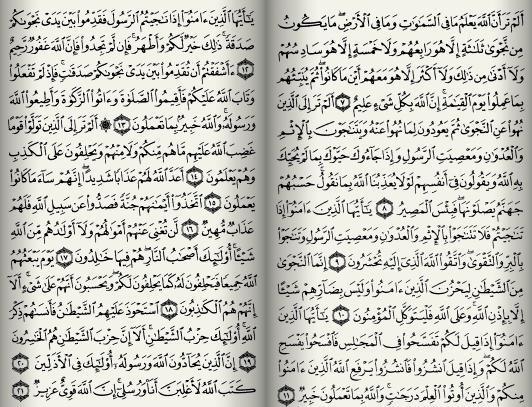 أَلَمْ تَرَ أَنَّ ٱللَّهَ يَعْلَمُ مَا فِى ٱلسَّمَٰوَٰتِ وَمَا فِى ٱلْأَرْضِ مَا يَكُونُ
مِن نَّجْوَىٰ ثَلَٰثَةٍ إِلَّا هُوَ رَابِعُهُمْ وَلَا خَمْسَةٍ إِلَّا هُوَ سَادِسُهُمْ
وَلَآ أَدْنَىٰ مِن ذَٰلِكَ وَلَآ أَكْثَرَ إِلَّا هُوَ مَعَهُمْ أَيْنَ مَا كَانُوا۟ ثُمَّ يُنَبِّئُهُم
بِمَا عَمِلُوا۟ يَوْمَ ٱلْقِيَٰمَةِ إِنَّ ٱللَّهَ بِكُلِّ شَىْءٍ عَلِيمٌ ٧ أَلَمْ تَرَ إِلَى ٱلَّذِينَ
نُهُوا۟ عَنِ ٱلنَّجْوَىٰ ثُمَّ يَعُودُونَ لِمَا نُهُوا۟ عَنْهُ وَيَتَنَٰجَوْنَ بِٱلْإِثْمِ
وَٱلْعُدْوَٰنِ وَمَعْصِيَتِ ٱلرَّسُولِ وَإِذَا جَآءُوكَ حَيَّوْكَ بِمَا لَمْ يُحَيِّكَ
بِهِ ٱللَّهُ وَيَقُولُونَ فِىٓ أَنفُسِهِمْ لَوْلَا يُعَذِّبُنَا ٱللَّهُ بِمَا نَقُولُ حَسْبُهُمْ
جَهَنَّمُ يَصْلَوْنَهَا فَبِئْسَ ٱلْمَصِيرُ ٨ يَٰٓأَيُّهَا ٱلَّذِينَ ءَامَنُوٓا۟ إِذَا
تَنَٰجَيْتُمْ فَلَا تَتَنَٰجَوْا۟ بِٱلْإِثْمِ وَٱلْعُدْوَٰنِ وَمَعْصِيَتِ ٱلرَّسُولِ وَتَنَٰجَوْا۟
بِٱلْبِرِّ وَٱلتَّقْوَىٰ وَٱتَّقُوا۟ ٱللَّهَ ٱلَّذِىٓ إِلَيْهِ تُحْشَرُونَ ٩ إِنَّمَا ٱلنَّجْوَىٰ
مِنَ ٱلشَّيْطَٰنِ لِيَحْزُنَ ٱلَّذِينَ ءَامَنُوا۟ وَلَيْسَ بِضَآرِّهِمْ شَيْـًٔا
إِلَّا بِإِذْنِ ٱللَّهِ وَعَلَى ٱللَّهِ فَلْيَتَوَكَّلِ ٱلْمُؤْمِنُونَ ١٠ يَٰٓأَيُّهَا ٱلَّذِينَ
ءَامَنُوٓا۟ إِذَا قِيلَ لَكُمْ تَفَسَّحُوا۟ فِى ٱلْمَجَٰلِسِ فَٱفْسَحُوا۟ يَفْسَحِ
ٱللَّهُ لَكُمْ وَإِذَا قِيلَ ٱنشُزُوا۟ فَٱنشُزُوا۟ يَرْفَعِ ٱللَّهُ ٱلَّذِينَ ءَامَنُوا۟
مِنكُمْ وَٱلَّذِينَ أُوتُوا۟ ٱلْعِلْمَ دَرَجَٰتٍ وَٱللَّهُ بِمَا تَعْمَلُونَ خَبِيرٌ ١١
يَٰٓأَيُّهَا ٱلَّذِينَ ءَامَنُوٓا۟ إِذَا نَٰجَيْتُمُ ٱلرَّسُولَ فَقَدِّمُوا۟ بَيْنَ يَدَىْ نَجْوَىٰكُمْ
صَدَقَةً ذَٰلِكَ خَيْرٌ لَّكُمْ وَأَطْهَرُ فَإِن لَّمْ تَجِدُوا۟ فَإِنَّ ٱللَّهَ غَفُورٌ رَّحِيمٌ
١٢ ءَأَشْفَقْتُمْ أَن تُقَدِّمُوا۟ بَيْنَ يَدَىْ نَجْوَىٰكُمْ صَدَقَٰتٍ فَإِذْ لَمْ تَفْعَلُوا۟
وَتَابَ ٱللَّهُ عَلَيْكُمْ فَأَقِيمُوا۟ ٱلصَّلَوٰةَ وَءَاتُوا۟ ٱلزَّكَوٰةَ وَأَطِيعُوا۟ ٱللَّهَ
وَرَسُولَهُۥ وَٱللَّهُ خَبِيرٌۢ بِمَا تَعْمَلُونَ ١٣ ۞ أَلَمْ تَرَ إِلَى ٱلَّذِينَ تَوَلَّوْا۟ قَوْمًا
غَضِبَ ٱللَّهُ عَلَيْهِم مَّا هُم مِّنكُمْ وَلَا مِنْهُمْ وَيَحْلِفُونَ عَلَى ٱلْكَذِبِ
وَهُمْ يَعْلَمُونَ ١٤ أَعَدَّ ٱللَّهُ لَهُمْ عَذَابًا شَدِيدًا إِنَّهُمْ سَآءَ مَا كَانُوا۟
يَعْمَلُونَ ١٥ ٱتَّخَذُوٓا۟ أَيْمَٰنَهُمْ جُنَّةً فَصَدُّوا۟ عَن سَبِيلِ ٱللَّهِ فَلَهُمْ
عَذَابٌ مُّهِينٌ ١٦ لَّن تُغْنِىَ عَنْهُمْ أَمْوَٰلُهُمْ وَلَآ أَوْلَٰدُهُم مِّنَ ٱللَّهِ
شَيْـًٔا أُو۟لَٰٓئِكَ أَصْحَٰبُ ٱلنَّارِ هُمْ فِيهَا خَٰلِدُونَ ١٧ يَوْمَ يَبْعَثُهُمُ
ٱللَّهُ جَمِيعًا فَيَحْلِفُونَ لَهُۥ كَمَا يَحْلِفُونَ لَكُمْ وَيَحْسَبُونَ أَنَّهُمْ عَلَىٰ شَىْءٍ أَلَآ
إِنَّهُمْ هُمُ ٱلْكَٰذِبُونَ ١٨ ٱسْتَحْوَذَ عَلَيْهِمُ ٱلشَّيْطَٰنُ فَأَنسَىٰهُمْ ذِكْرَ
ٱللَّهِ أُو۟لَٰٓئِكَ حِزْبُ ٱلشَّيْطَٰنِ أَلَآ إِنَّ حِزْبَ ٱلشَّيْطَٰنِ هُمُ ٱلْخَٰسِرُونَ
١٩ إِنَّ ٱلَّذِينَ يُحَآدُّونَ ٱللَّهَ وَرَسُولَهُۥٓ أُو۟لَٰٓئِكَ فِى ٱلْأَذَلِّينَ ٢٠
كَتَبَ ٱللَّهُ لَأَغْلِبَنَّ أَنَا۠ وَرُسُلِىٓ إِنَّ ٱللَّهَ قَوِىٌّ عَزِيزٌ ٢١